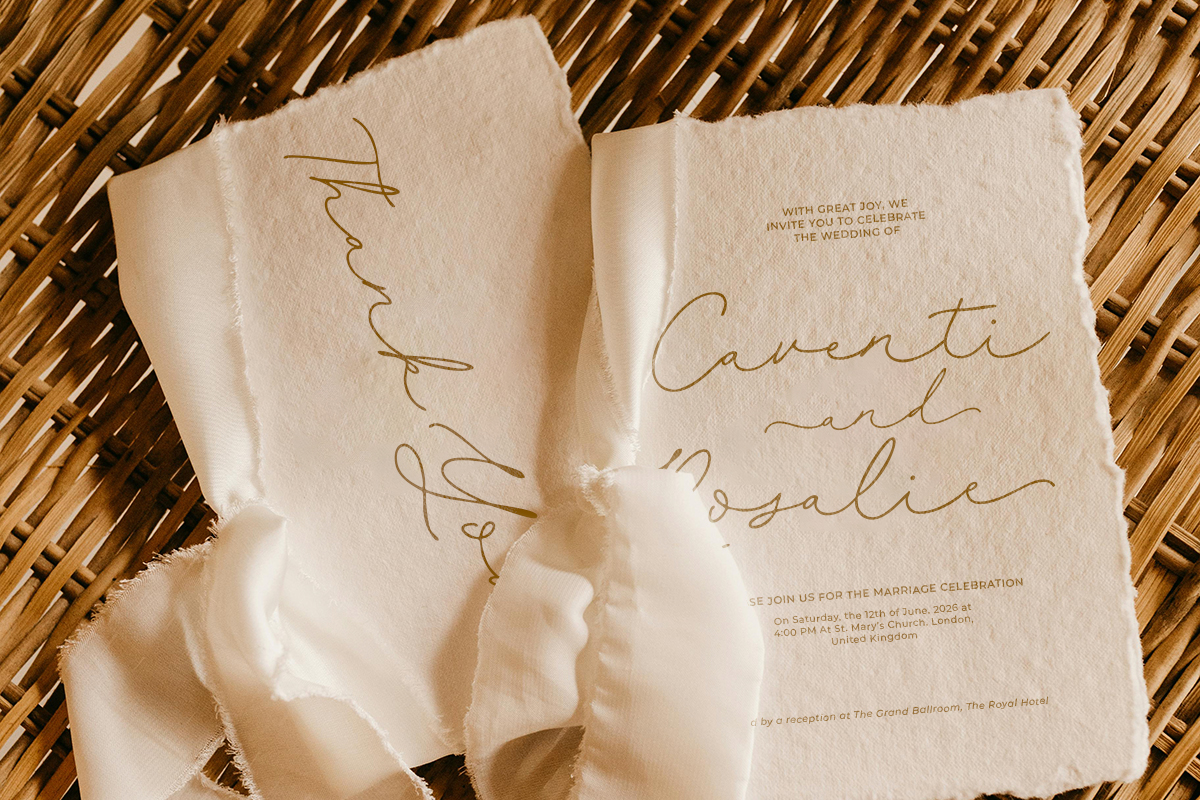 Thank
WITH GREAT JOY, WE
INVITE YOU TO CELEBRATE
THE WEDDING OF
Caventi
and
Rosalie
JOIN US FOR THE MARRIAGE CELEBRATION
On Saturday, the 12th of June, 2026 at
4:00 PM At St. Mary's Church, London,
United Kingdom
by a reception at The Grand Ballroom, The Royal Hotel